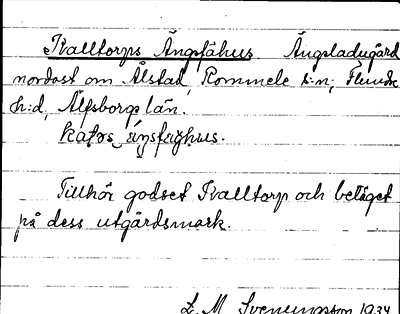 Kalltorps Ängsfähus Ängsladugård
nordost om Ålstad, Rommele s:n, Flundre
h:d, Älfsborgs län.
Tillhör godset Kalltorp och beläget
på dess utgårdsmark.
L. M. Svenungsson 1934